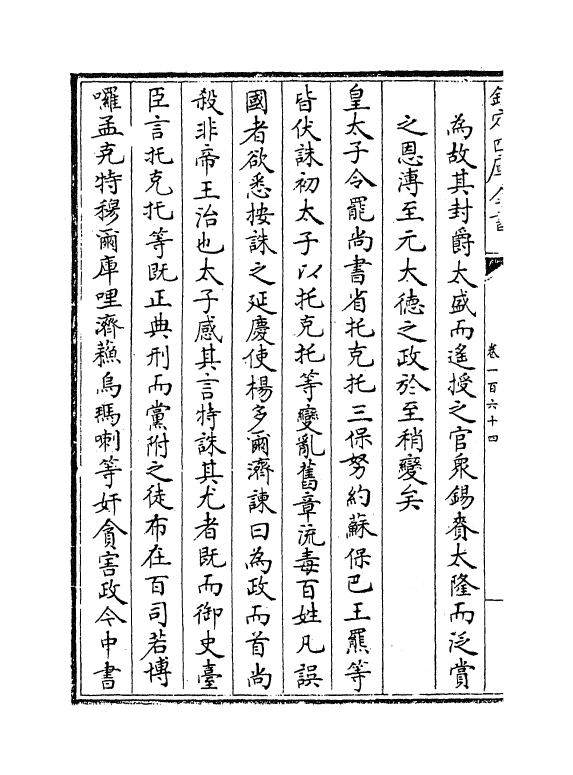 欽定四庫全書
卷一百六十四
為故其封爵太盛而遙授之官衆錫賚太隆而泛賞
之恩溥至元大德之政於至稍變矣
皇太子令罷尚書省托克托三保努約蘇保巴王羆等
皆伏誅初太子以托克托等變亂舊章流毒百姓凡誤
國者欲悉按誅之延慶使楊多爾濟諫曰為政而首尚
殺非帝王治也太子感其言特誅其尤者既而御史臺
臣言托克托等既正典刑而黨附之徒布在百司若博
囉孟克特穆爾庫哩濟蘓烏瑪喇等奸貪害政今中書